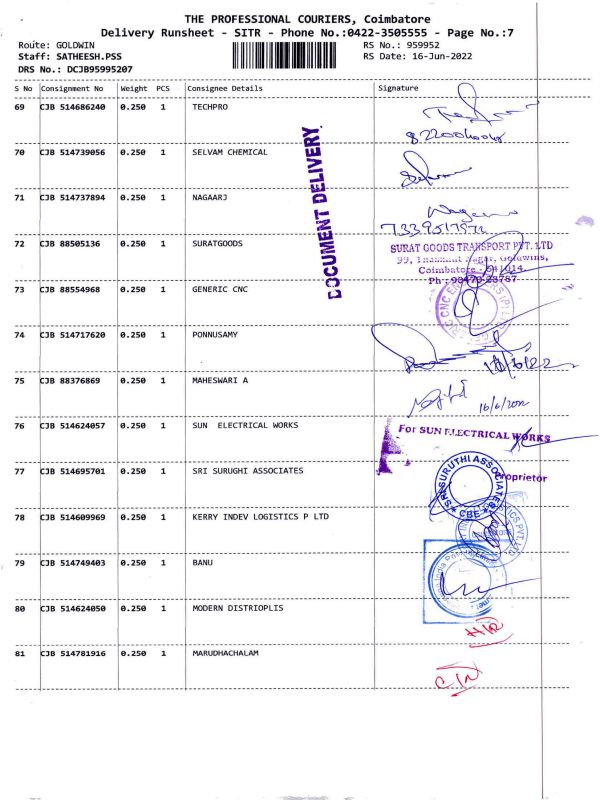 THE PROFESSIONAL COURIERS, Coimbatore
Delivery Runsheet - SITR - Phone No.:0422-3505555 - Page No.:7
Route: GOLDWIN RS No.: 959952
Staff: SATHEESH.PSS RS Date: 16-Jun-2022
DRS No.: DCJB95995207
S No Consignment No Weight PCS Consignee Details Signature
69 CJB 514686240 0.250 1 TECHPRO
70 CJB 514739056 0.250 1 SELVAM CHEMICAL
DOCUMENT DELIVERY
71 CJB 514737894 0.250 1 NAGAARJ
72 CJB 88505136 0.250 1 SURATGOODS
SURAT GOODS TRANSPORT PVT. LTD
Coimbatore - 641014.
73 CJB 88554968 0.250 1 GENERIC CNC
74 CJB 514717620 0.250 1 PONNUSAMY
75 CJB 88376869 0.250 1 MAHESWARI A
16/6/2022
76 CJB 514624057 0.250 1 SUN ELECTRICAL WORKS
For SUN ELECTRICAL WORKS
Proprietor
77 CJB 514695701 0.250 1 SRI SURUGHI ASSOCIATES
SRI SURUTHI ASSOCIATES
CBE
78 CJB 514609969 0.250 1 KERRY INDEV LOGISTICS P LTD
79 CJB 514749403 0.250 1 BANU
80 CJB 514624050 0.250 1 MODERN DISTRIOPLIS
81 CJB 514781916 0.250 1 MARUDHACHALAM